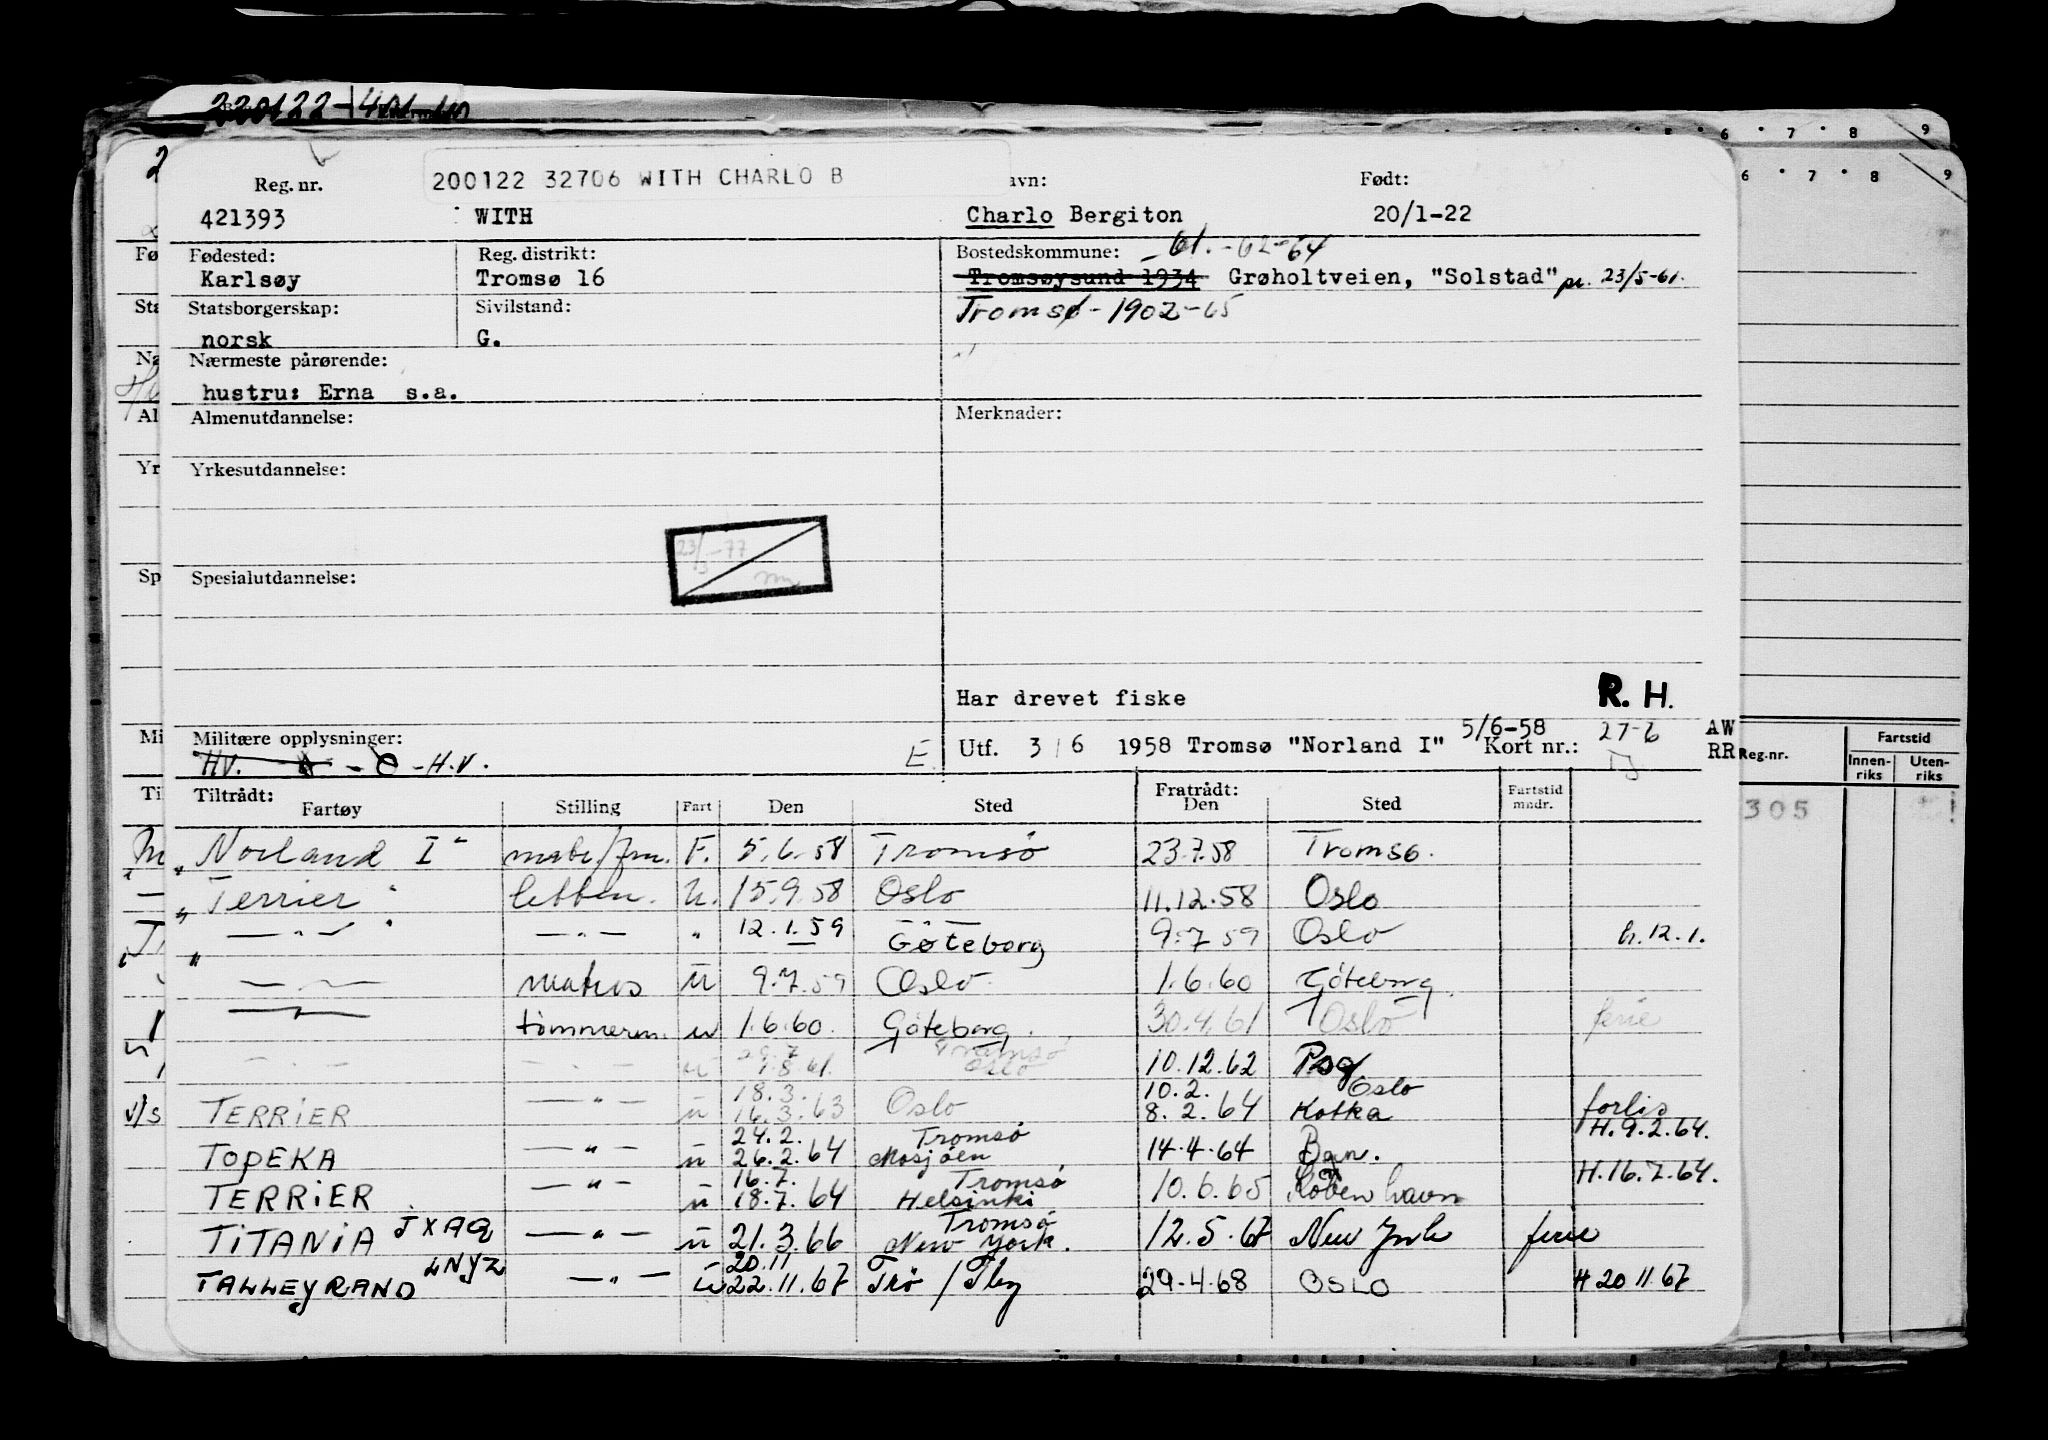 220122
6 7 8 9
200122 32706 WITH CHARLO B
6 7 8 9
Reg. nr. avn: Født:
421393 WITH Charlo Bergiton 20/1-22
Fødested: Reg. distrikt: Bostedskommune: -61.-62-64
Karlsøy Tromsø 16 Tromsøysund 1934 Grøholtveien, "Solstad" pr. 23/5-61.
Statsborgerskap: Sivilstand: Tromsø-1902-65
norsk G.
Nærmeste pårørende:
hustru: Erna s.a.
Almenutdannelse: Merknader:
Yrkesutdannelse:
23/3-77
Spesialutdannelse:
Har drevet fiske R. H.
Militære opplysninger: E. Utf. 3/6 1958 Tromsø "Norland I" 5/6-58 Kort nr.: 27-6 AW
HV. - H.V. RR Reg.nr. Fartstid
Innenriks Utenriks
Tiltrådt: Fratrådt:
Fartøy Stilling Fart Den Sted Den Sted Fartstid mndr.
305
"Norland I" F. 5.6.58 Tromsø 23.7.58 Tromsø.
"Terrier" U. 15.9.58 Oslo 11.12.58 Oslo
" — " — " — " — " 12.1.59 Gøteborg 9.7.59 Oslo h. 12.1.
— " — matros u 9.7.59 Oslo 1.6.60 Göteborg.
— " — tømmerm. u 1.6.60. Göteborg. 30.4.61 Oslo ferie
— " — — " — u 29.7 1.8.61. Tromsø Oslo 10.12.62 Psg
TERRIER — " — u 18.3. 16.3.63 Oslo 10.2. 8.2.64 Oslo Kotka forlis
TOPEKA — " — u 24.2. 26.2.64 Tromsø Mosjøen 14.4.64 H. 9.2.64.
TERRIER — " — u 16.7. 18.7.64 Tromsø Helsinki 10.6.65 København H. 16.7.64.
TITANIA JXAQ — " — u 21.3.66 Tromsø New York. 12.5.67 New York ferie
TALLEYRAND LNYZ — " — u 20.11 22.11.67 Trø / Tbg 29-4-68 OSLO H 20 11.67